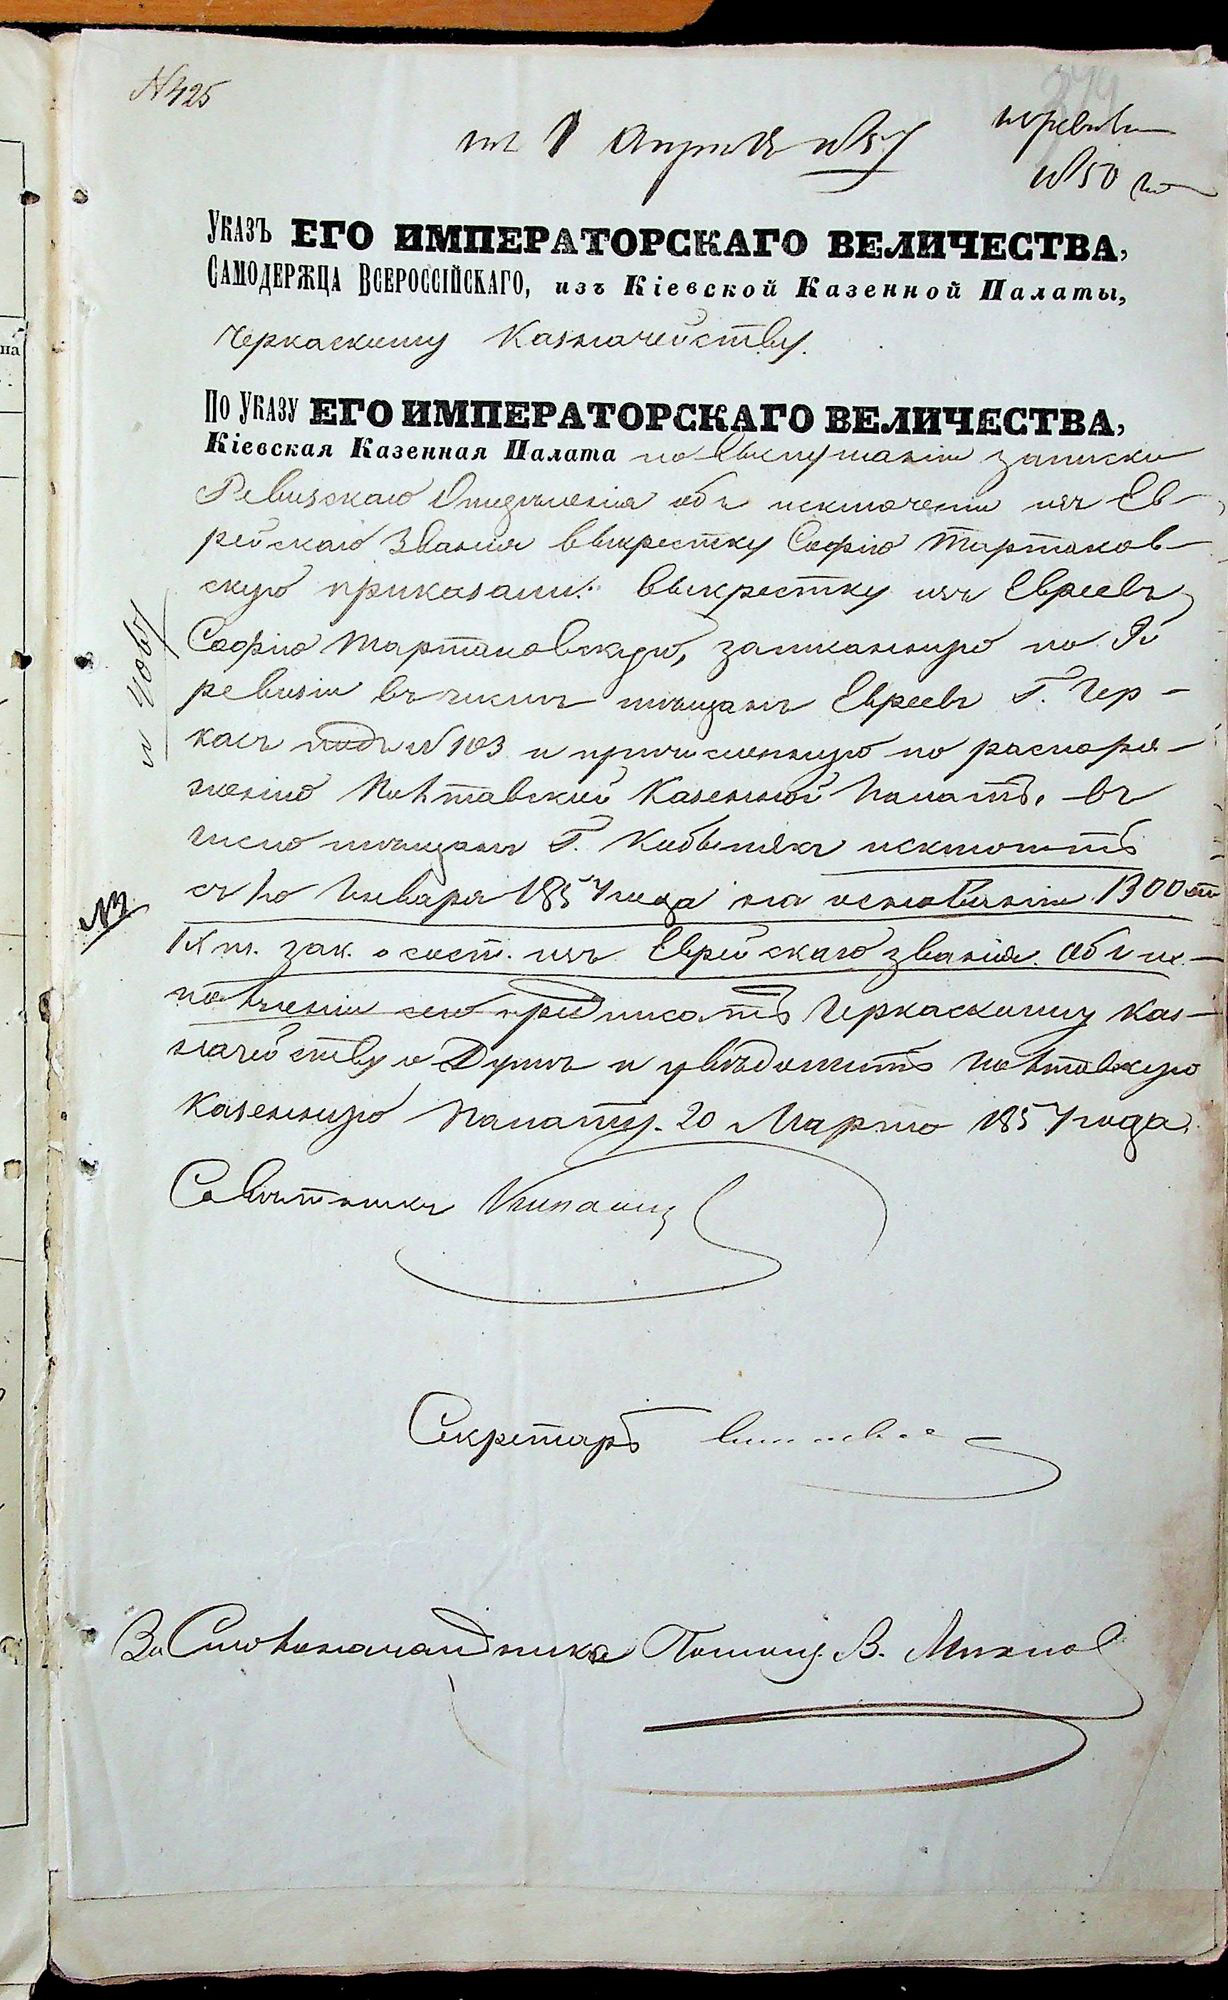 № 425
Апреля 1857
1850 го
Указъ ЕГО ИМПЕРАТОРСКАГО ВЕЛИЧЕСТВА,
Самодержца Всероссійскаго, изъ Кіевской Казенной Палаты,
Черкаскому Казначейству.
По Указу ЕГО ИМПЕРАТОРСКАГО ВЕЛИЧЕСТВА,
Кіевская Казенная Палата по выслушаніи записки
Ревизскаго Отдѣленія объ исключеніи изъ Ев-
рейскаго Званія выкрестку Софію Тартаков-
скую приказали: выкрестку изъ Евреевъ
Софію Тартаковскую, записанную по
ревизіи въ числѣ мѣщанъ Евреевъ Г. Чер-
касъ подъ № 103 и причисленную по распоря-
женію Полтавской Казенной Палаты, въ
число мѣщанъ Г. Кобылякъ исключить
съ 1го Января 1857 года на основаніи 1300 ст
IX т. зак. о сост. изъ Еврейскаго званія. Объ ис-
полненіи сего предписать Черкаскому Каз-
начейству и Думѣ и увѣдомить Полтавскую
Казенную Палату. 20 Марта 1857 года.
Совѣтникъ
Секретарь
За Столоначальника Помощ. В.